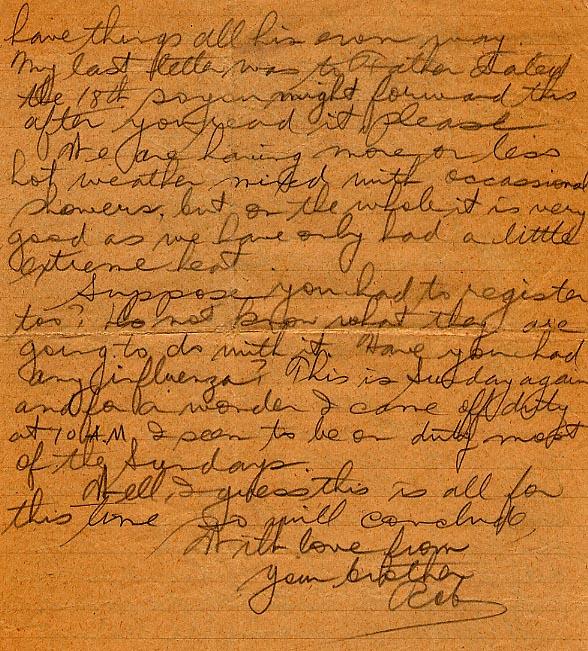 have things all his own way.
My last letter was to Father dated
the 18th so you might forward this
after you read it, please
We are having more or less
hot weather mixed with occassional
showers, but on the whole it is very
good as we have only had a little
extreme heat.
Suppose you had to register
too? Do not know what they are
going to do with it. Have you had
any influenza? This is Sunday again
and for a wonder I came off duty
at 10 A.M. I seem to be on duty most
of the Sundays.
Well, I guess this is all for
this time so will conclude,
With love from
your brother